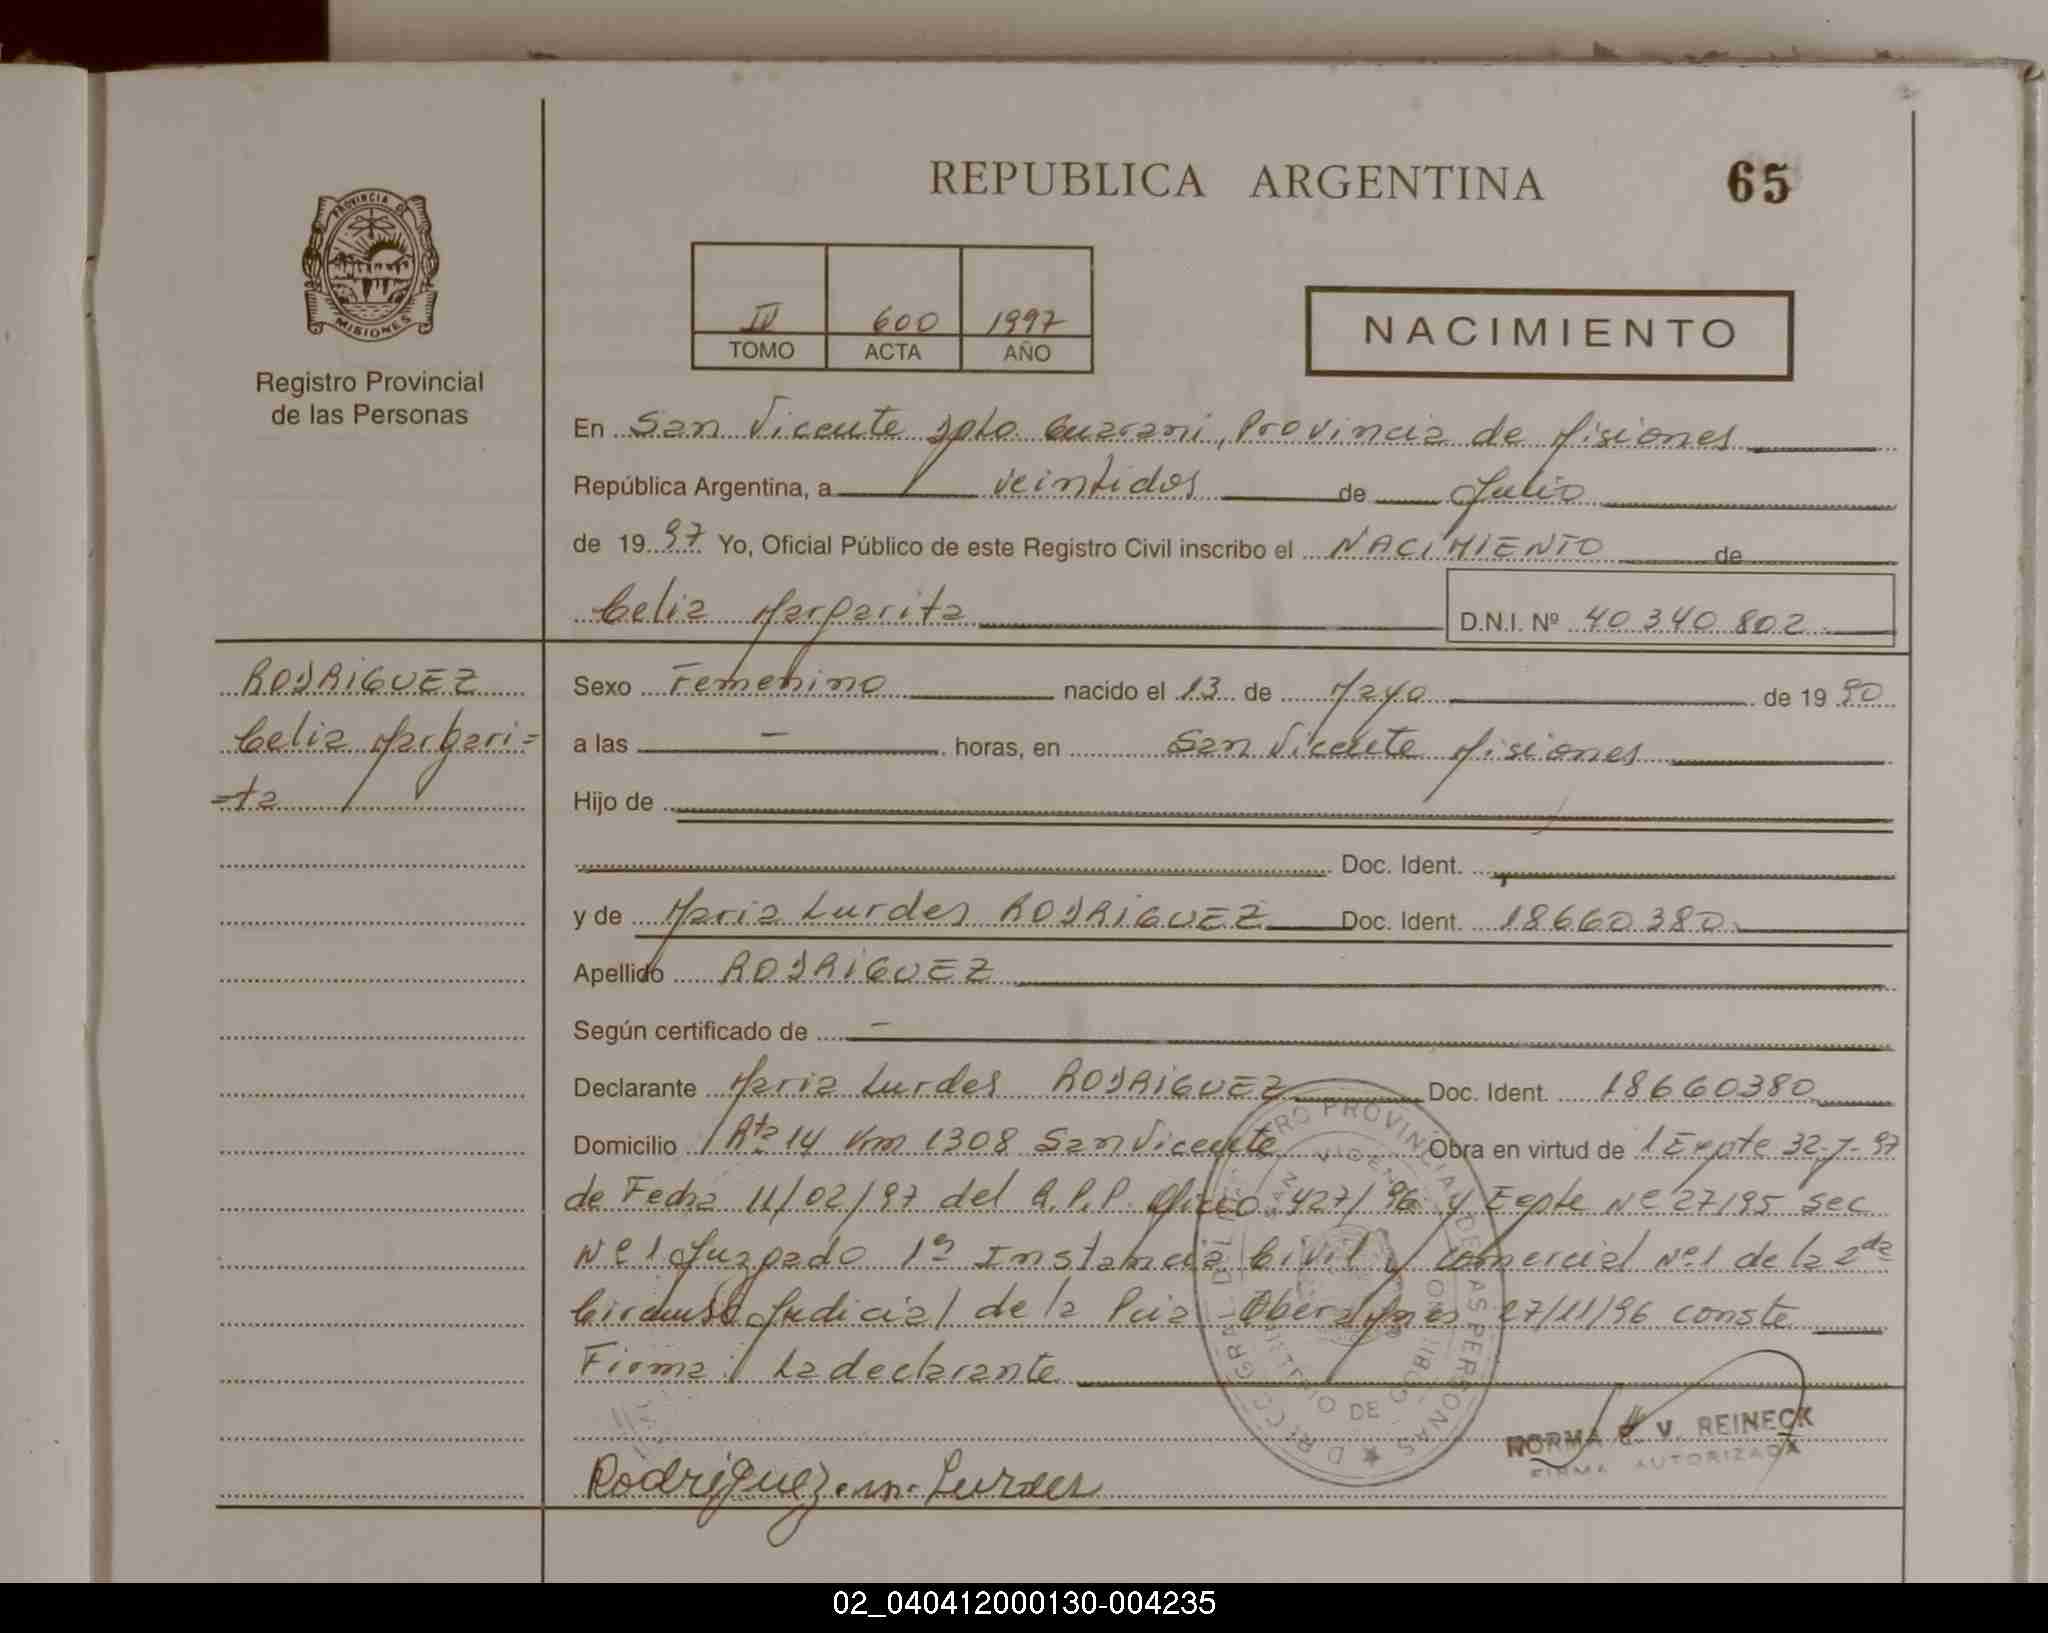 REPUBLICA ARGENTINA 65
PROVINCIA DE
MISIONES
Registro Provincial
de las Personas
IV 600 1997
TOMO ACTA AÑO
NACIMIENTO
En San Vicente Dpto. Guarani, Provincia de Misiones
República Argentina, a veintidos de Julio
de 1997 Yo, Oficial Público de este Registro Civil inscribo el NACIMIENTO de
Celia Margarita D.N.I. Nº 40 340 802
RODRIGUEZ
Celia Margari=
=ta
Sexo Femenino nacido el 13 de Mayo de 19 90
a las – horas, en San Vicente Misiones
Hijo de
Doc. Ident.
y de Maria Lurdes RODRIGUEZ Doc. Ident. 18660380
Apellido RODRIGUEZ
Según certificado de –
Declarante Maria Lurdes RODRIGUEZ Doc. Ident. 18660380
Domicilio Rta 14 Km 1308 San Vicente Obra en virtud de 1 Expte 32-7-97
de Fecha 11/02/97 del R.P.P. Oficio 427/96 y Expte Nº 27/95 Sec
Nº 1 Juzgado 1ª Instancia Civil y Comercial Nº 1 de la 2da
Judicial de la Pcia Obera 27/11/96 conste
Firma La declarante
NORMA V. REINECK
FIRMA AUTORIZADA
Rodriguez m. Lurdes
02_040412000130-004235